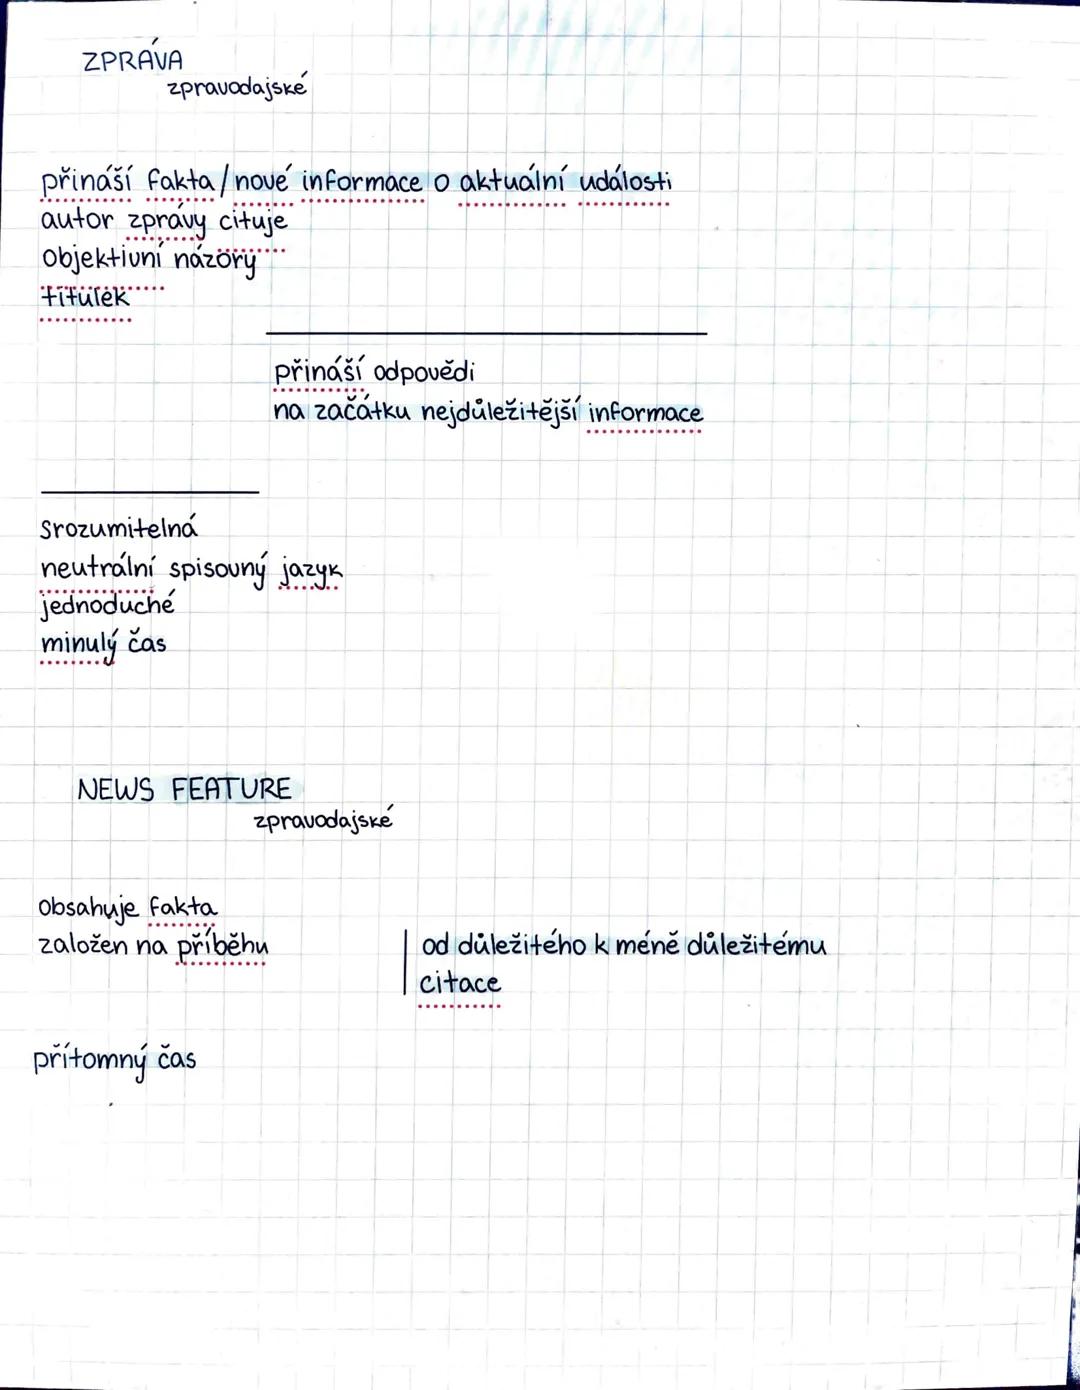 ZPRÁVA
zpravodajské
přináší fakta/nové informace o aktuální události
autor zprávy cituje
objektivní názory
titulek
přináší odpovědi
na začátku nejdůležitější informace
srozumitelná
neutrální spisovný jazyk
jednoduché
minulý čas
NEWS FEATURE
zpravodajské
obsahuje fakta
založen na příběhu
od důležitého k méně důležitému
citace
přítomný čas